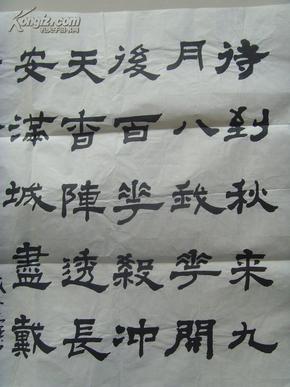 Kongfz.com
待到秋来九
月八我花開
後百花殺冲
天香陣透長
安滿城盡戴